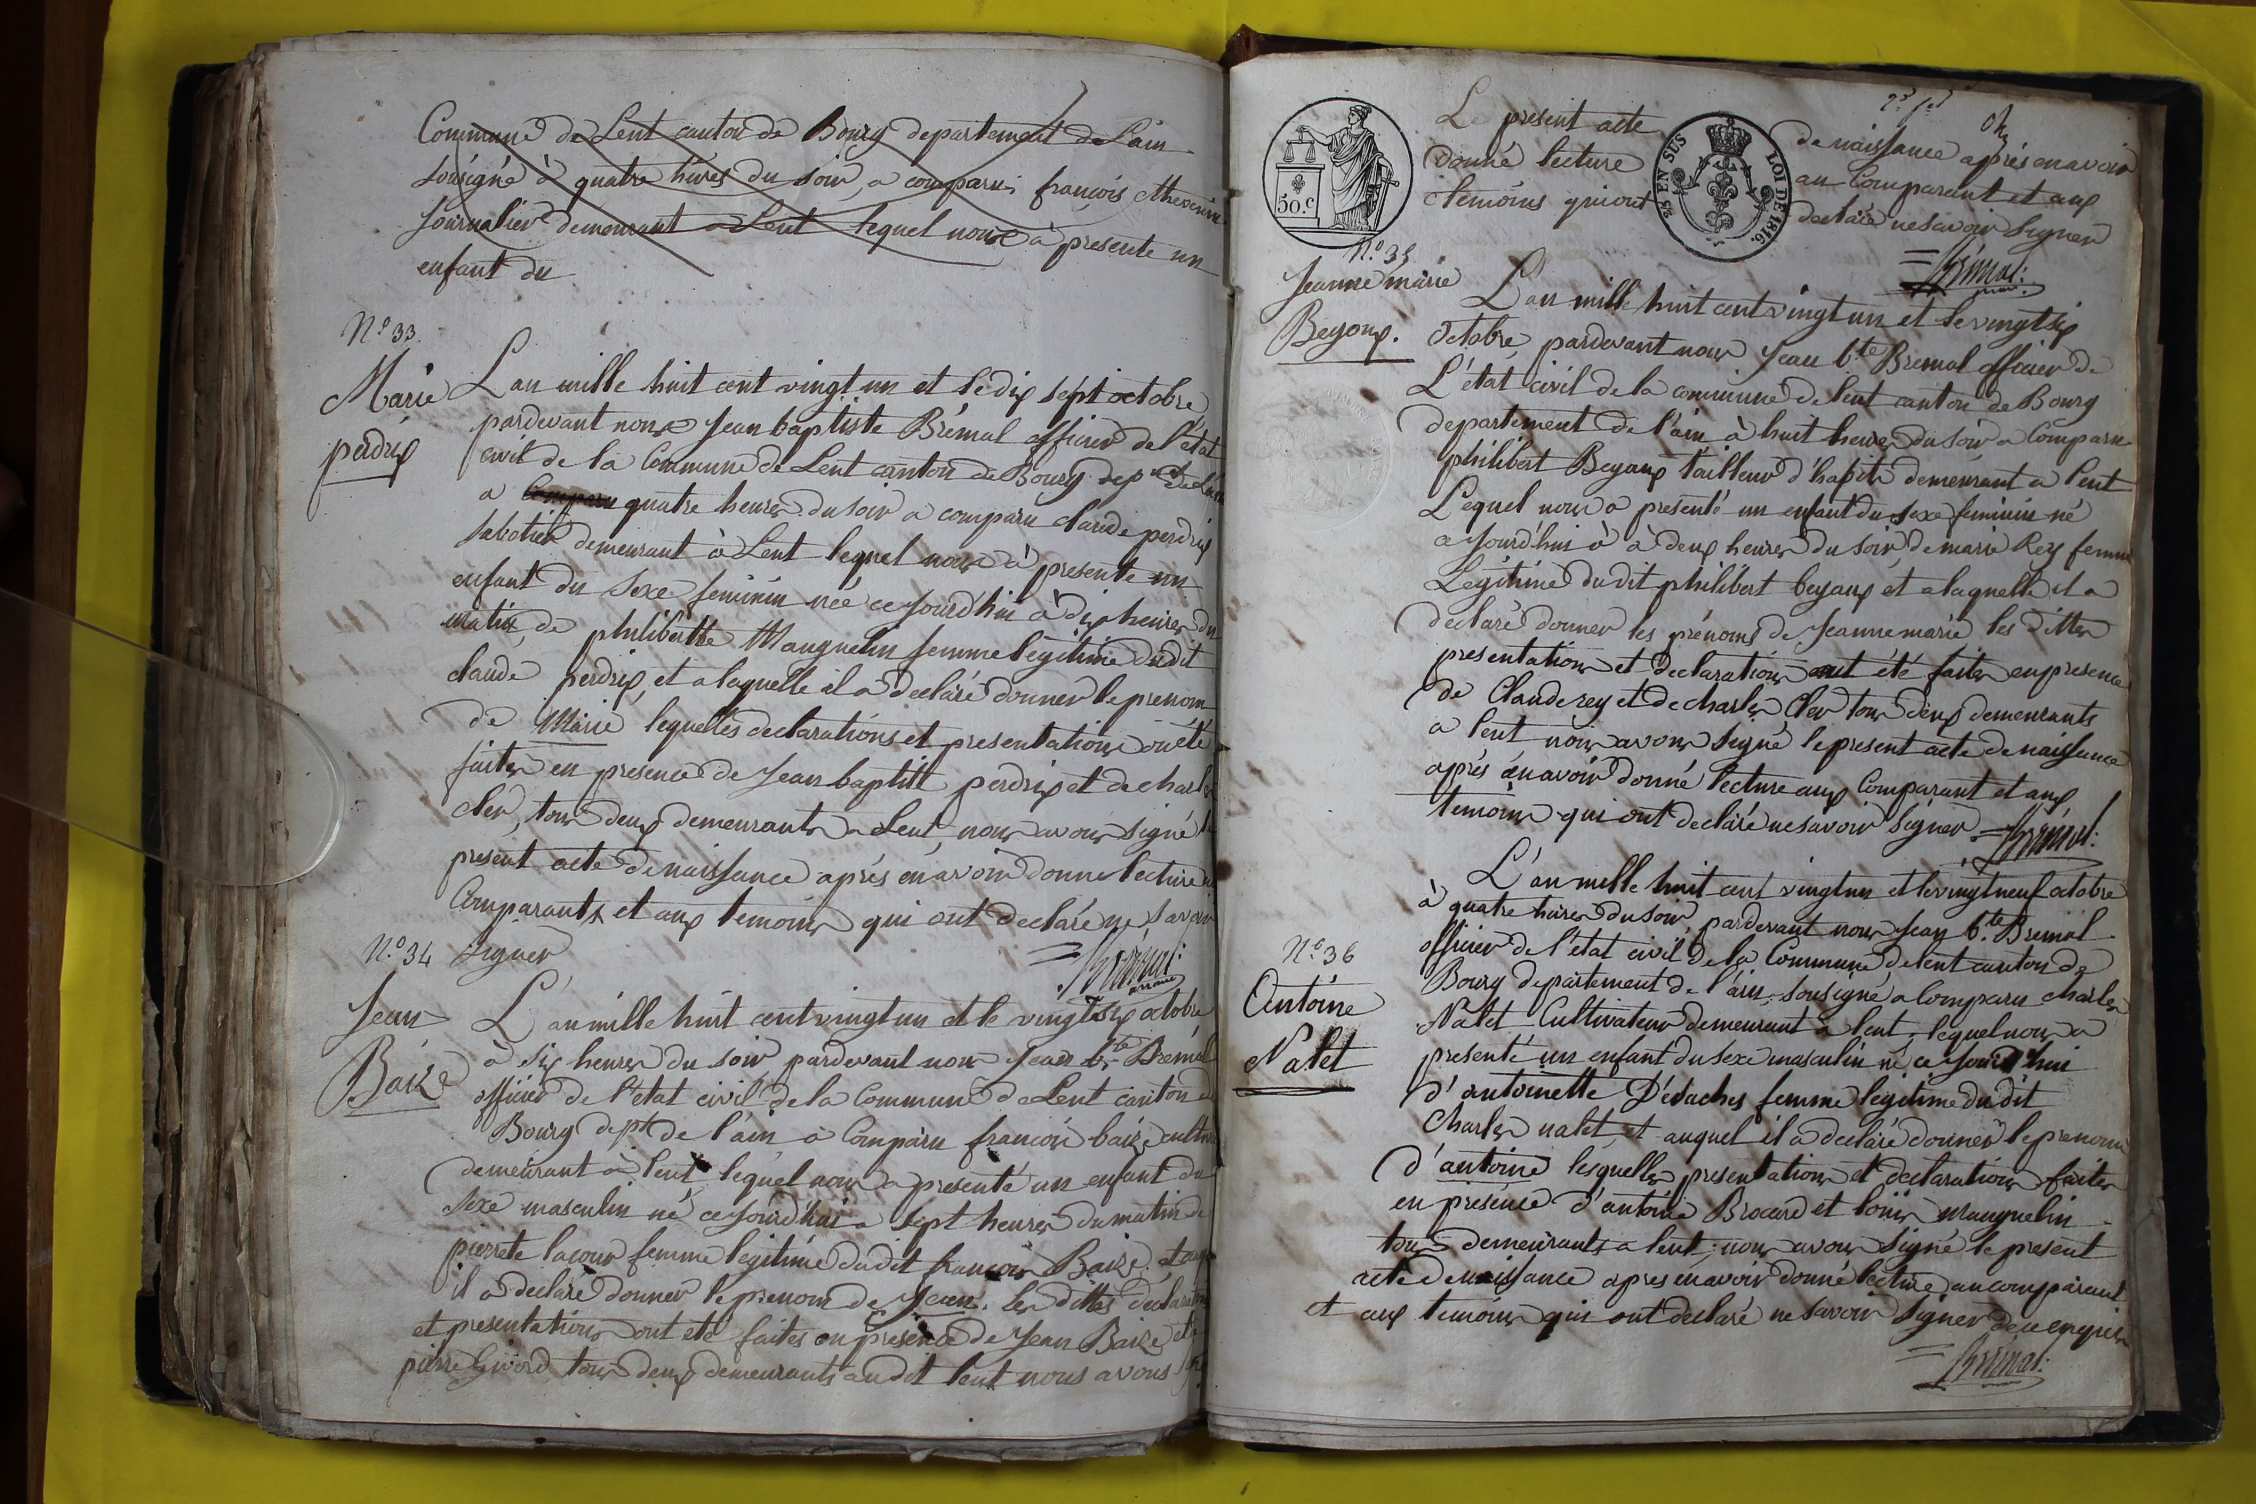 Commune de Lent canton de Bourg departement de L'ain
sousigné à quatre hures du soir, a comparu, françois thevenin
journalier demeurant a Lent lequel nous à presente un
enfant du
N.o 33.
Marie
perdrix
L'an mille huit cent vingt un et le dix sept octobre
pardevant nous Jean baptiste Brémal officier de l'état
civil de la Commune de Lent canton de Bourg dept de L'ain
a quatre heures du soir a comparu claude perdrix
sabotier demeurant à Lent lequel nous à presente un
enfant du sexe feminin née ce jourd'hui à dix heures du
matin, de philiberthe Mauguelin femme legitime dudit
claude perdrix, et a laquelle il a declaré donner le prenom
de Marie lequelles declarations et presentations on été
faites en presence de Jean baptiste perdrix et de charles
cler, tous deux demeurants a Lent, nous avons signé le
present acte de naissance après en avoir donne lecture
Comparants et aux temoins qui ont declaré ne savoir
signer
Brémal:
N.o 34
Jean
Baize
L'an mille huit cent vingt un et le vingt six octobre
à six heures du soir pardevant nous Jean b.te Brémal
officier de l'état civil de la Commune de Lent canton de
Bourg dept de l'ain à Comparu françois baize
demeurant à lent lequel nous a presenté un enfant du
sexe masculin né ce jourd'hui a sept heures du matin de
pierrete lacour femme legitime dudit françois Baize, et
il a declaré donner le prenom de Jean. les dittes declarations
et presentations ont été faites en presence de Jean Baize et
pierre Givord tous deux demeurants audit lent nous avons
50.c
25 EN SUS
LOI DE 1816.
Le present acte de naissance après en avoir
donné lecture au Comparant et aux
temoins qui ont declaré ne savoir signer
Brémal:
N.o 35
Jeanne marie
Beyoux.
L'an mille huit cent vingt un et le vingt six
octobre, pardevant nous Jean b.te Bremal officier de
L'état civil de la commune de lent canton de Bourg
departement de l'ain à huit heures du soir a Comparu
philibert Beyoux tailleur d'habits demeurant a lent
Lequel nous a presenté un enfant du sexe feminin né
a jourd'hui à à deux heures du soir de marie Rey femme
Legitime dudit philibert beyoux, et a laquelle il a
declaré donner les prénoms de Jeanne marie les dittes
presentations et declarations ont été faites en presence
de Claude rey et de charles Cler tous deux demeurants
a lent nous avons signé le present acte de naissance
après en avoir donné lecture aux Comparant et aux
temoins qui ont declaré ne savoir signer
Brémal:
L'an mille huit cent vingt un et le vingt neuf octobre
à quatre heures du soir, pardevant nous Jean b.te Bremal
N.o 36
Antoine
Nalet
officier de l'état civil de la Commune de lent canton de
Bourg departement de l'ain, sousigné a Comparu charles
Nalet Cultivateur demeurant à lent, lequel nous a
presenté un enfant du sexe masculin né ce jourd'hui
d'antoinette Désaches femme legitime dudit
Charles nalet, et auquel il a declaré donner le prenom
d'antoine lesquelles presentations et declarations faites
en presence d'antoine Brocard et loüis mauguelin
tous demeurants a lent, nous avons signé le present
acte de naissance apres en avoir donné lecture au comparant
et aux temoins qui ont declaré ne savoir signer de ce enquis
Brémal: